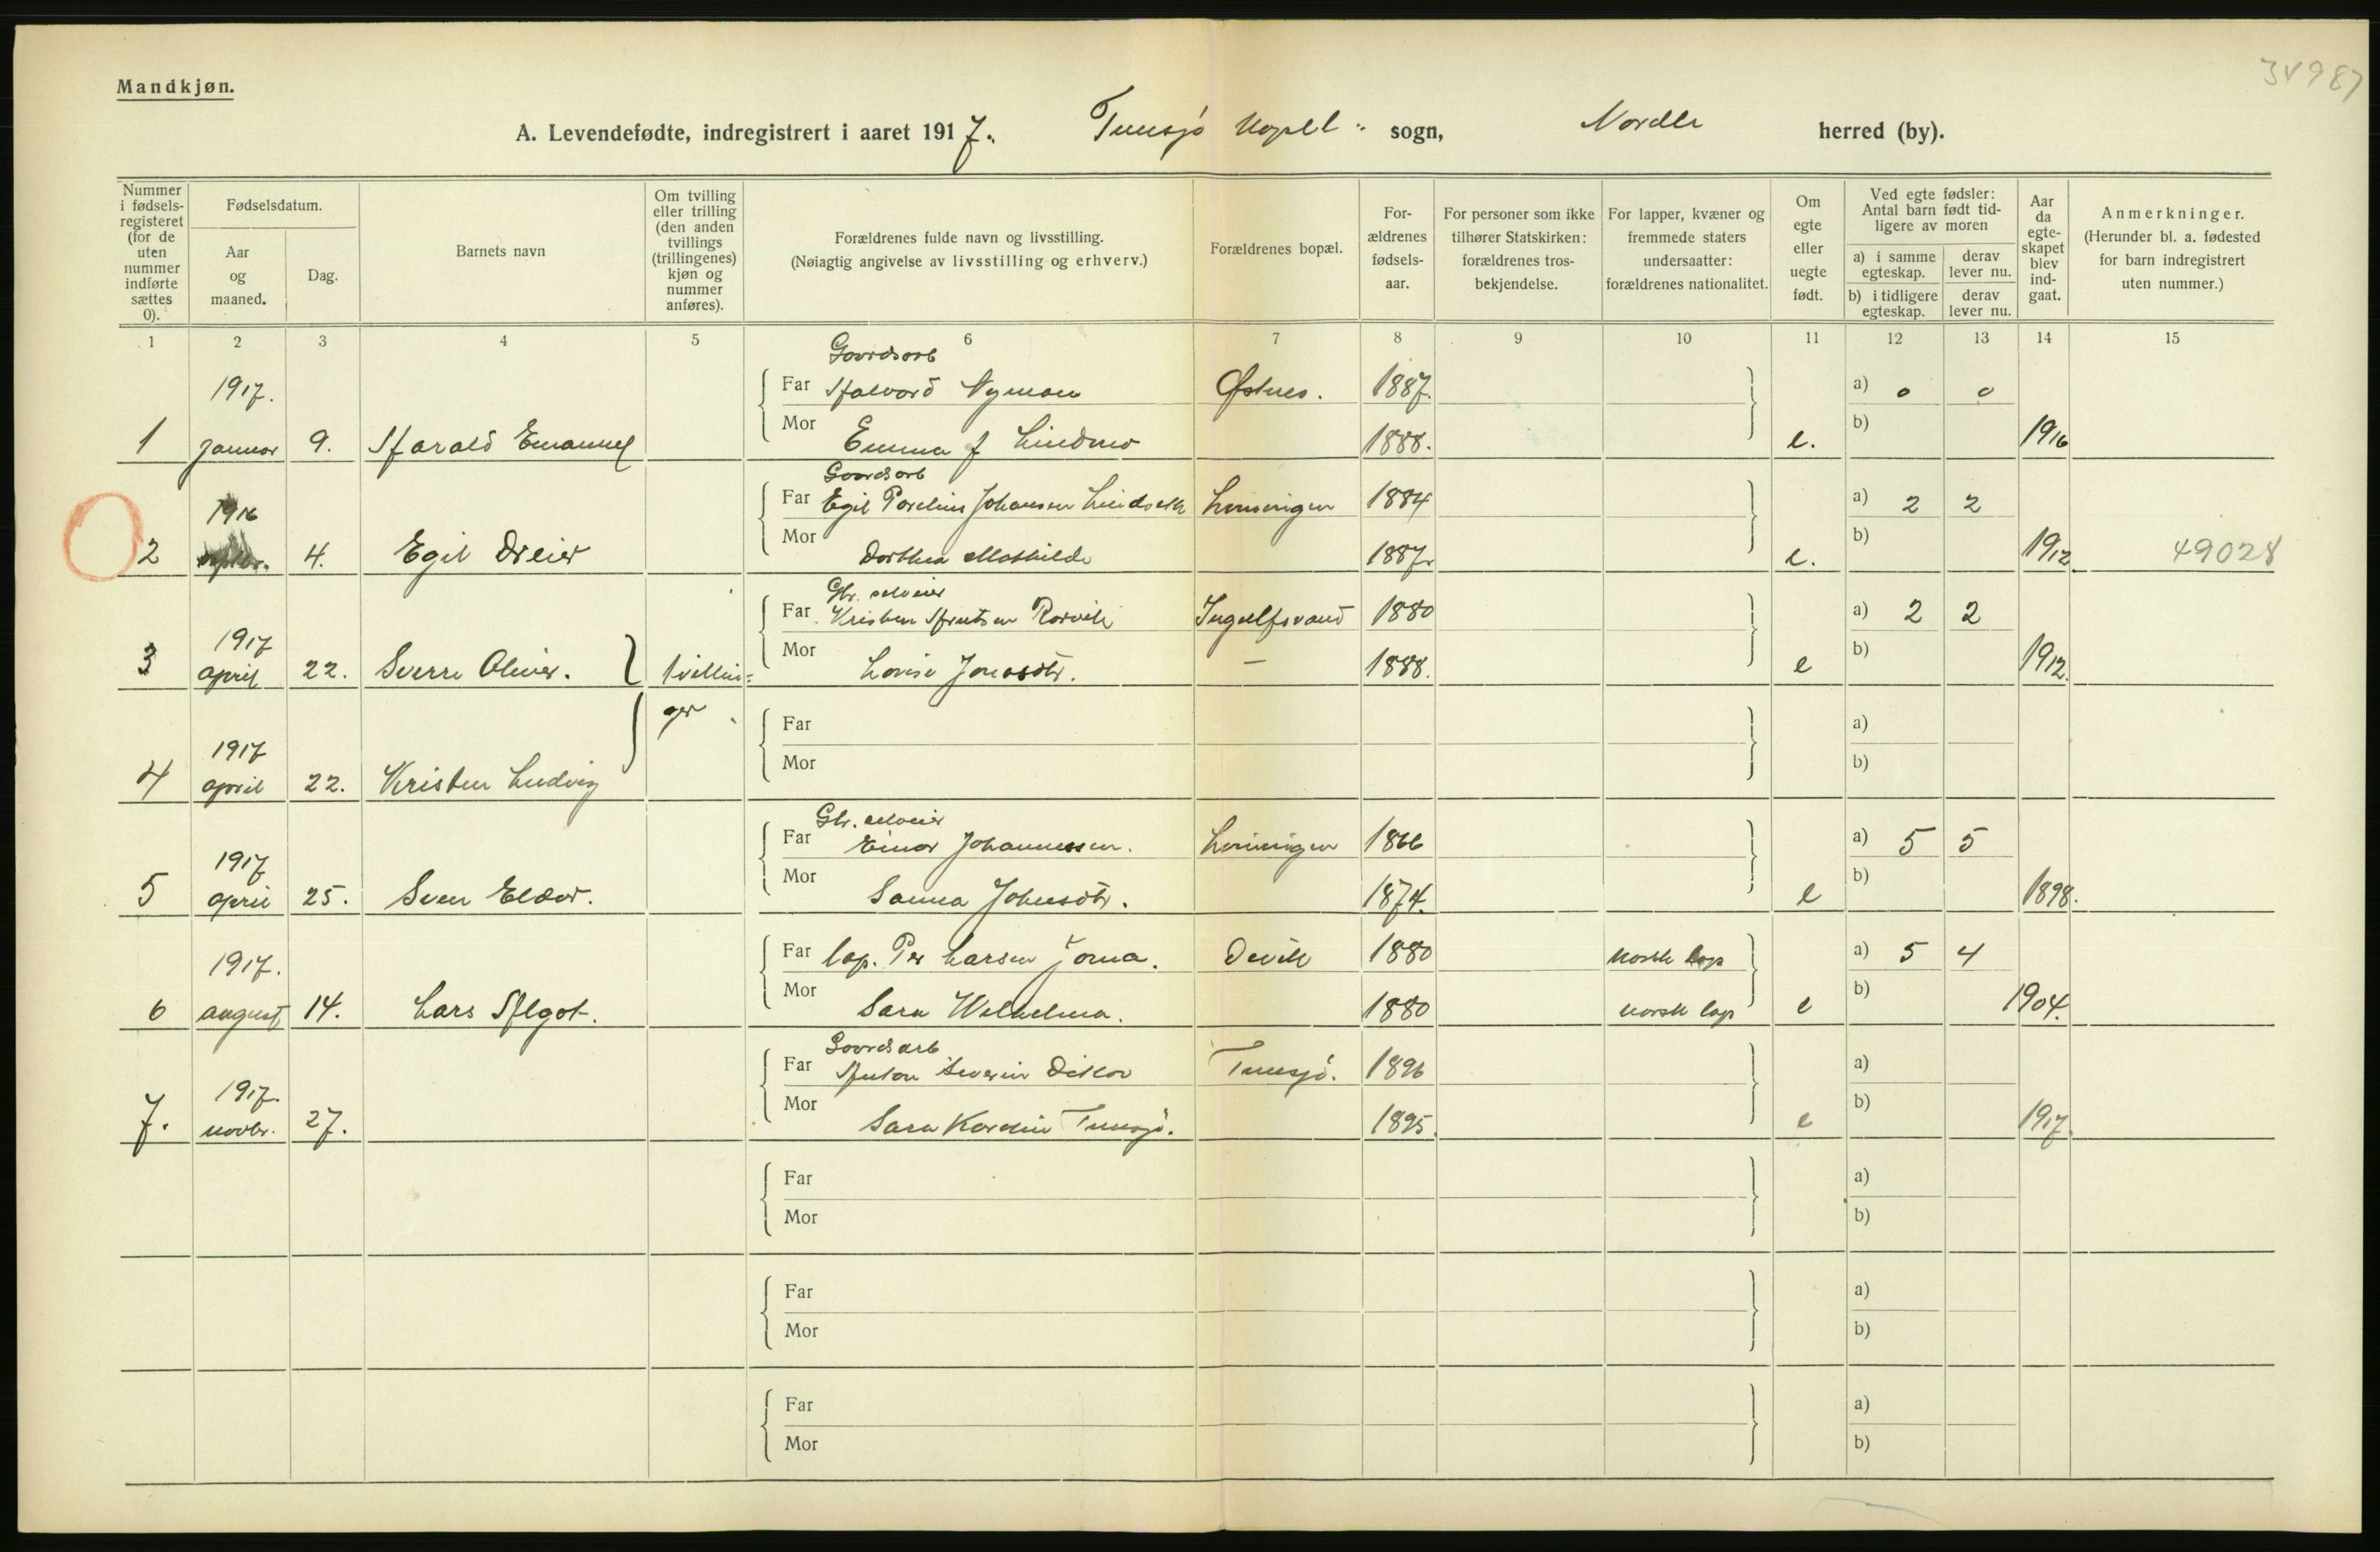 Mandkjøn.
A. Levendefødte, indregistrert i aaret 1917. Tunsjø kapel sogn, Nordli herred (by).
Nummer i fødsels-registeret (for de uten nummer indførte sættes 0).
Fødselsdatum.
Aar og maaned.
Dag.
Barnets navn
Om tvilling eller trilling (den anden tvillings (trillingenes) kjøn og nummer anføres).
Forældrenes fulde navn og livsstilling.
(Nøiagtig angivelse av livsstilling og erhverv.)
Forældrenes bopæl.
For-ældrenes fødsels-aar.
For personer som ikke tilhører Statskirken: forældrenes tros-bekjendelse.
For lapper, kvæner og fremmede staters undersaatter: forældrenes nationalitet.
Om egte eller uegte født.
Ved egte fødsler: Antal barn født tid-ligere av moren
a) i samme egteskap.
derav lever nu.
b) i tidligere egteskap.
derav lever nu.
Aar da egte-skapet blev ind-gaat.
Anmerkninger.
(Herunder bl. a. fødested for barn indregistrert uten nummer.)
1 2 3 4 5 6 7 8 9 10 11 12 13 14 15
Gaardsarb
1917. Far Halvard Nyman Østnes. 1887. a) 0 0
1 januar 9. Harald Emanuel Mor Emma f Lindmo 1888. e. b) 1916
Gaardsarb
1916 Far Egil Parelius Johansen Lindseth 1884 a) 2 2
2 4. Egil Dreier Mor Dorthea Mathilde 1887 e. b) 1912 49028
Gbr. selveier
1917 Far Kristen Rørvik Ingulfsvand 1880 a) 2 2
3 april 22. Sverre Oliver. tvillin= Mor Lovise Jonasdtr. — 1888. e b) 1912.
ger
1917 Far a)
4 april 22. Kristen Ludvig Mor b)
Gbr. selveier
1917 Far Einar Johannessen. 1866 a) 5 5
5 april 25. Sven Eldor. Mor Sanna Johnsdtr. 1874. e b) 1898.
1917. Far lap. Per Larsen Joma. Devik 1880 norsk lap a) 5 4
6 august 14. Lars Helgot. Mor Sara Wilhelma. 1880 norsk lap e b) 1904.
Gaardsarb
1917. Far Anton Severin Tunsjø. 1896 a)
7. novbr. 27. Mor Sara Karolin Tunsjø. 1895. e b) 1917.
Far a)
Mor b)
Far a)
Mor b)
Far a)
Mor b)